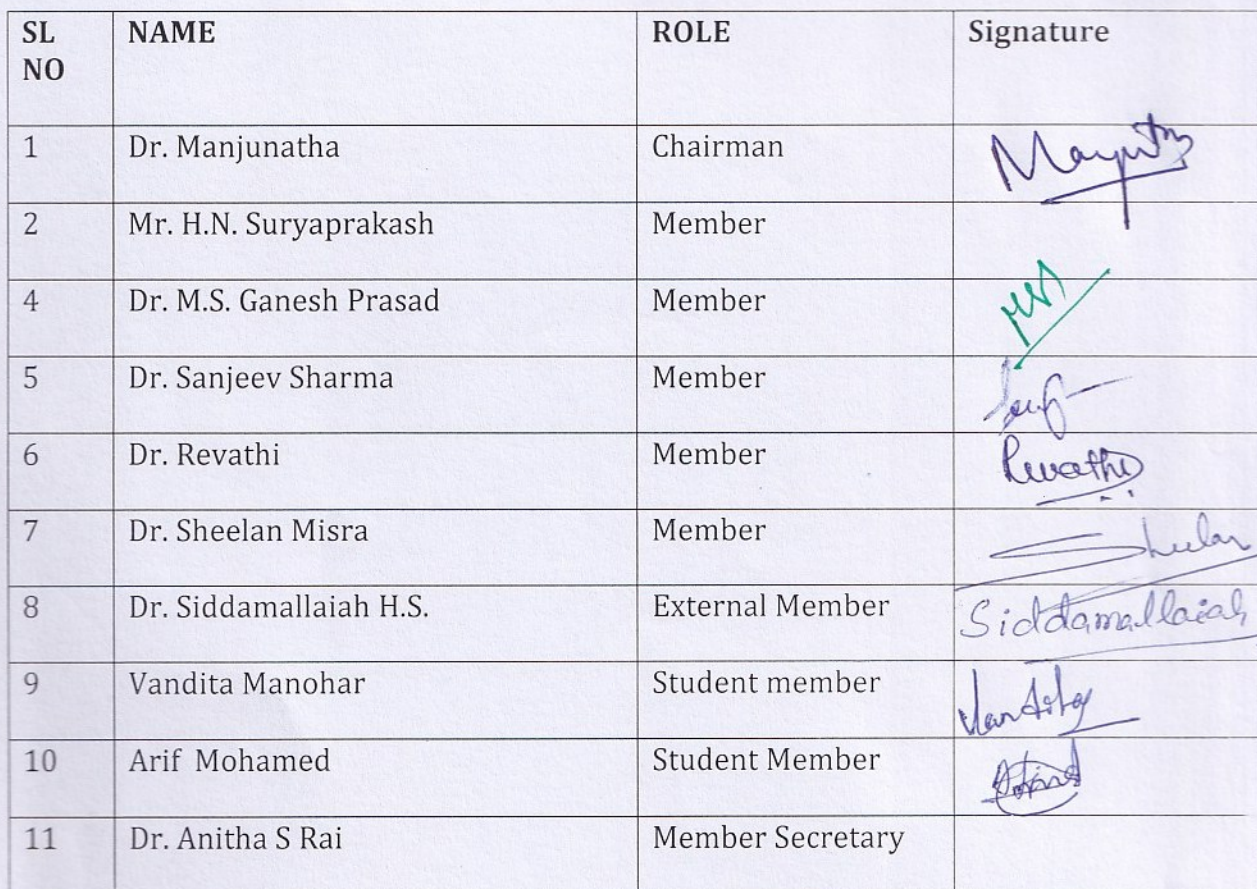 SL NO NAME ROLE Signature
1 Dr. Manjunatha Chairman
2 Mr. H.N. Suryaprakash Member
4 Dr. M.S. Ganesh Prasad Member
5 Dr. Sanjeev Sharma Member
6 Dr. Revathi Member Revathi
7 Dr. Sheelan Misra Member Sheelan
8 Dr. Siddamallaiah H.S. External Member Siddamallaiah
9 Vandita Manohar Student member Vandita
10 Arif Mohamed Student Member
11 Dr. Anitha S Rai Member Secretary